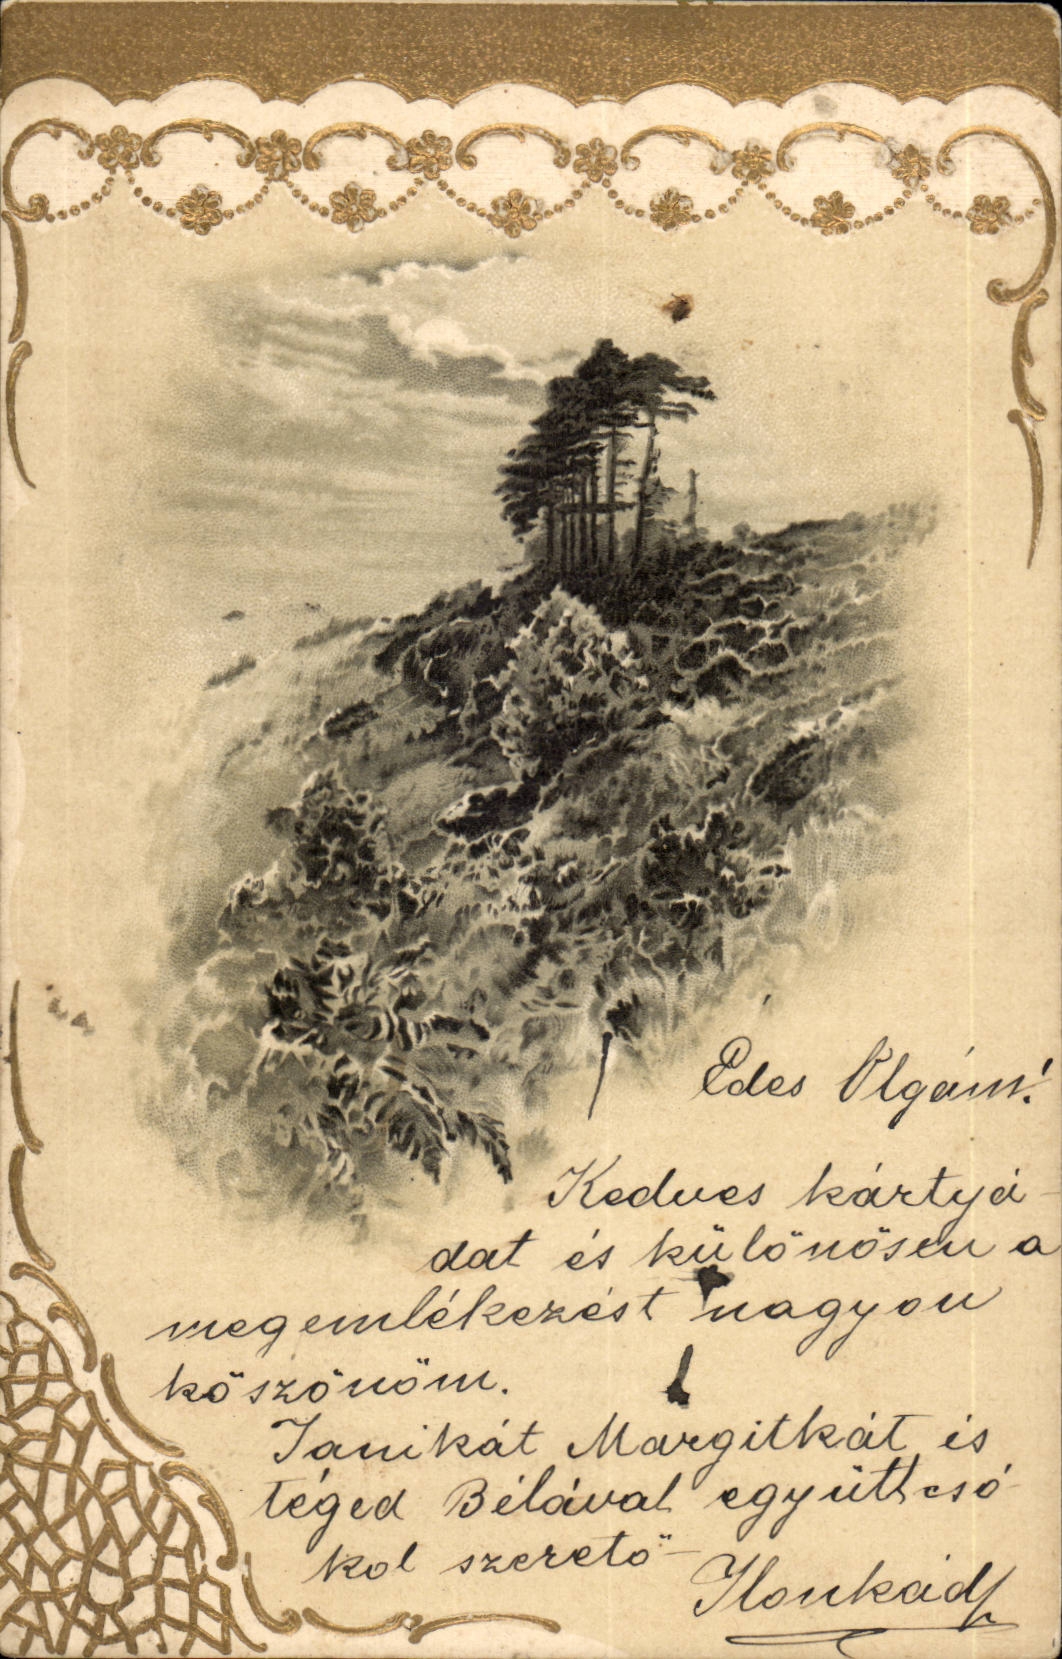 Édes Olgám!
Kedves kártyá-
dat és különösen a
megemlékezést nagyon
köszönöm.
Janikát Margitkát és
téged Bélával együtt csó-
kol szerető-
Ilonkád